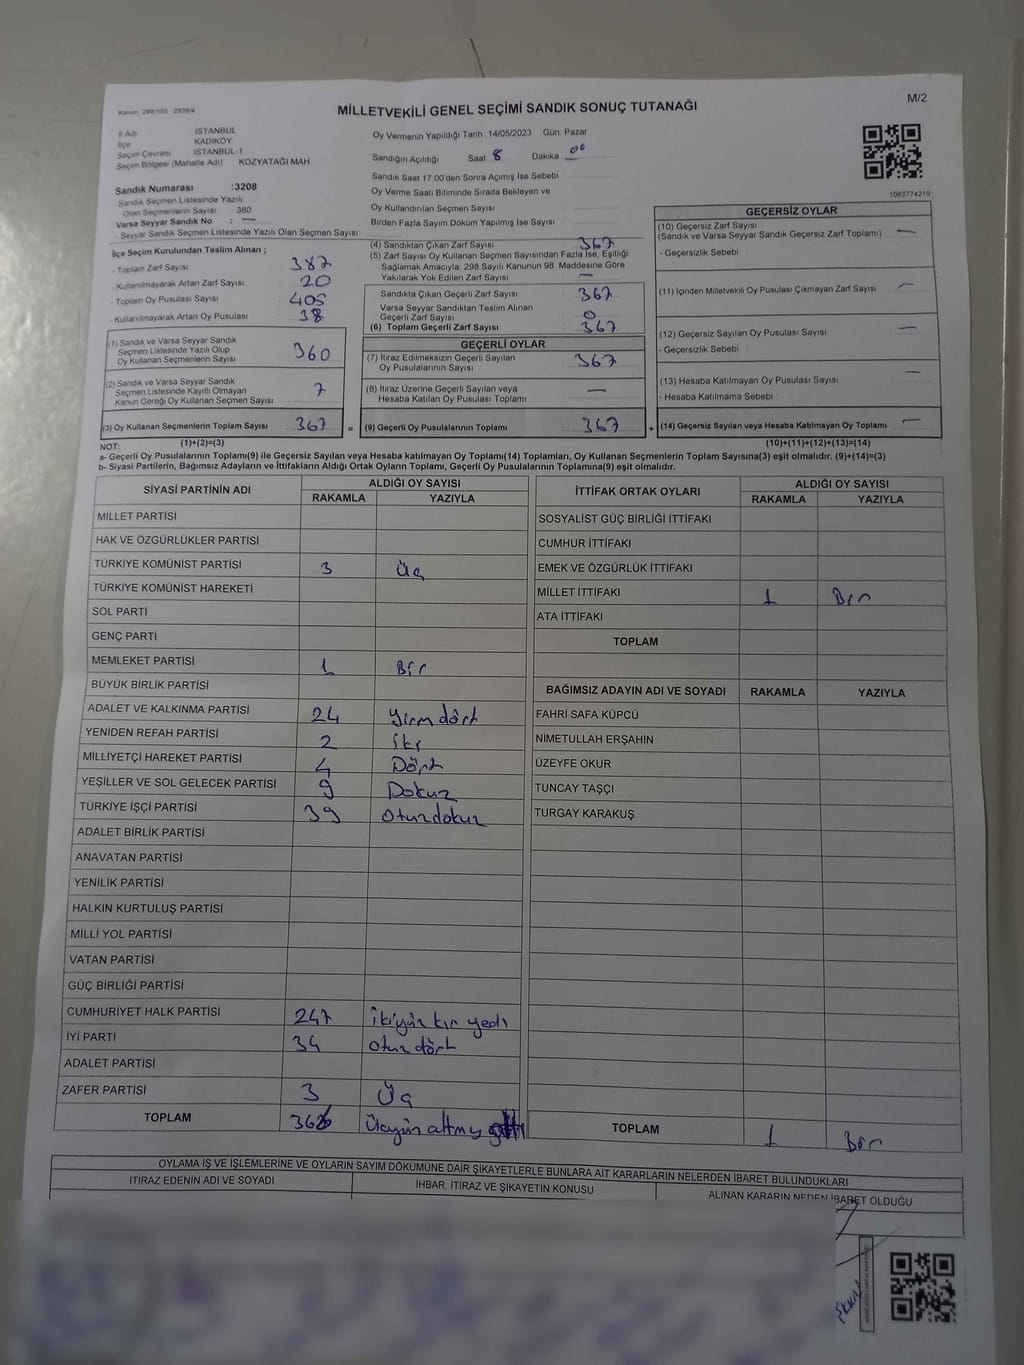 Kanun: 298/103 2839/4
MİLLETVEKİLİ GENEL SEÇİMİ SANDIK SONUÇ TUTANAĞI
M/2
İl Adı İSTANBUL
İlçe KADIKÖY
Seçim Çevresi İSTANBUL-1
Seçim Bölgesi (Mahalle Adı) KOZYATAĞI MAH
Sandık Numarası :3208
Sandık Seçmen Listesinde Yazılı
Olan Seçmenlerin Sayısı 380
Varsa Seyyar Sandık No : —
Seyyar Sandık Seçmen Listesinde Yazılı Olan Seçmen Sayısı
Oy Vermenin Yapıldığı Tarih :14/05/2023 Gün: Pazar
Sandığın Açıldığı Saat 8 Dakika 00
Sandık Saat 17:00'den Sonra Açımış İse Sebebi
Oy Verme Saati Bitiminde Sırada Bekleyen ve
Oy Kullandırılan Seçmen Sayısı
Birden Fazla Sayım Döküm Yapılmış İse Sayısı
1083774219
İlçe Seçim Kurulundan Teslim Alınan ;
- Toplam Zarf Sayısı 387
- Kullanılmayarak Artan Zarf Sayısı 20
- Toplam Oy Pusulası Sayısı 405
- Kullanılmayarak Artan Oy Pusulası 38
(1) Sandık ve Varsa Seyyar Sandık
Seçmen Listesinde Yazılı Olup
Oy Kullanan Seçmenlerin Sayısı 360
(2) Sandık ve Varsa Seyyar Sandık
Seçmen Listesinde Kayıtlı Olmayan
Kanun Gereği Oy Kullanan Seçmen Sayısı 7
(3) Oy Kullanan Seçmenlerin Toplam Sayısı 367 =
(4) Sandıktan Çıkan Zarf Sayısı 367
(5) Zarf Sayısı Oy Kullanan Seçmen Sayısından Fazla İse, Eşitliği
Sağlamak Amacıyla, 298 Sayılı Kanunun 98. Maddesine Göre
Yakılarak Yok Edilen Zarf Sayısı —
Sandıkta Çıkan Geçerli Zarf Sayısı 367
Varsa Seyyar Sandıktan Teslim Alınan
Geçerli Zarf Sayısı 0
(6) Toplam Geçerli Zarf Sayısı 367
GEÇERLİ OYLAR
(7) İtiraz Edilmeksizin Geçerli Sayılan
Oy Pusulalarının Sayısı 367
(8) İtiraz Üzerine Geçerli Sayılan veya
Hesaba Katılan Oy Pusulası Toplamı —
(9) Geçerli Oy Pusulalarının Toplamı 367 +
GEÇERSİZ OYLAR
(10) Geçersiz Zarf Sayısı
(Sandık ve Varsa Seyyar Sandık Geçersiz Zarf Toplamı) —
- Geçersizlik Sebebi
(11) İçinden Milletvekili Oy Pusulası Çıkmayan Zarf Sayısı —
(12) Geçersiz Sayılan Oy Pusulası Sayısı —
- Geçersizlik Sebebi :
(13) Hesaba Katılmayan Oy Pusulası Sayısı —
- Hesaba Katılmama Sebebi
(14) Geçersiz Sayılan veya Hesaba Katılmayan Oy Toplamı —
NOT: (1)+(2)=(3) (10)+(11)+(12)+(13)=(14)
a- Geçerli Oy Pusulalarının Toplamı(9) ile Geçersiz Sayılan veya Hesaba katılmayan Oy Toplamı(14) Toplamları, Oy Kullanan Seçmenlerin Toplam Sayısına(3) eşit olmalıdır. (9)+(14)=(3)
b- Siyasi Partilerin, Bağımsız Adayların ve İttifakların Aldığı Ortak Oyların Toplamı, Geçerli Oy Pusulalarının Toplamına(9) eşit olmalıdır.
SİYASİ PARTİNİN ADI ALDIĞI OY SAYISI
RAKAMLA YAZIYLA
MİLLET PARTİSİ
HAK VE ÖZGÜRLÜKLER PARTİSİ
TÜRKİYE KOMÜNİST PARTİSİ 3 Üç
TÜRKİYE KOMÜNİST HAREKETİ
SOL PARTİ
GENÇ PARTİ
MEMLEKET PARTİSİ 1 Bir
BÜYÜK BİRLİK PARTİSİ
ADALET VE KALKINMA PARTİSİ 24 yirm dört
YENİDEN REFAH PARTİSİ 2 iki
MİLLİYETÇİ HAREKET PARTİSİ 4 Dört
YEŞİLLER VE SOL GELECEK PARTİSİ 9 Dokuz
TÜRKİYE İŞÇİ PARTİSİ 39 otuzdokuz
ADALET BİRLİK PARTİSİ
ANAVATAN PARTİSİ
YENİLİK PARTİSİ
HALKIN KURTULUŞ PARTİSİ
MİLLİ YOL PARTİSİ
VATAN PARTİSİ
GÜÇ BİRLİĞİ PARTİSİ
CUMHURİYET HALK PARTİSİ 247 ikiyüz kır yedi
İYİ PARTİ 34 otuz dört
ADALET PARTİSİ
ZAFER PARTİSİ 3 Üç
TOPLAM 366 üçyüz altmış
İTTİFAK ORTAK OYLARI ALDIĞI OY SAYISI
RAKAMLA YAZIYLA
SOSYALİST GÜÇ BİRLİĞİ İTTİFAKI
CUMHUR İTTİFAKI
EMEK VE ÖZGÜRLÜK İTTİFAKI
MİLLET İTTİFAKI 1 Bir
ATA İTTİFAKI
TOPLAM
BAĞIMSIZ ADAYIN ADI VE SOYADI RAKAMLA YAZIYLA
FAHRİ SAFA KÜPCÜ
NİMETULLAH ERŞAHİN
ÜZEYFE OKUR
TUNCAY TAŞÇI
TURGAY KARAKUŞ
TOPLAM 1 Bir
OYLAMA İŞ VE İŞLEMLERİNE VE OYLARIN SAYIM DÖKÜMÜNE DAİR ŞİKAYETLERLE BUNLARA AİT KARARLARIN NELERDEN İBARET BULUNDUKLARI
İTİRAZ EDENİN ADI VE SOYADI İHBAR, İTİRAZ VE ŞİKAYETİN KONUSU ALINAN KARARIN NEDEN İBARET OLDUĞU